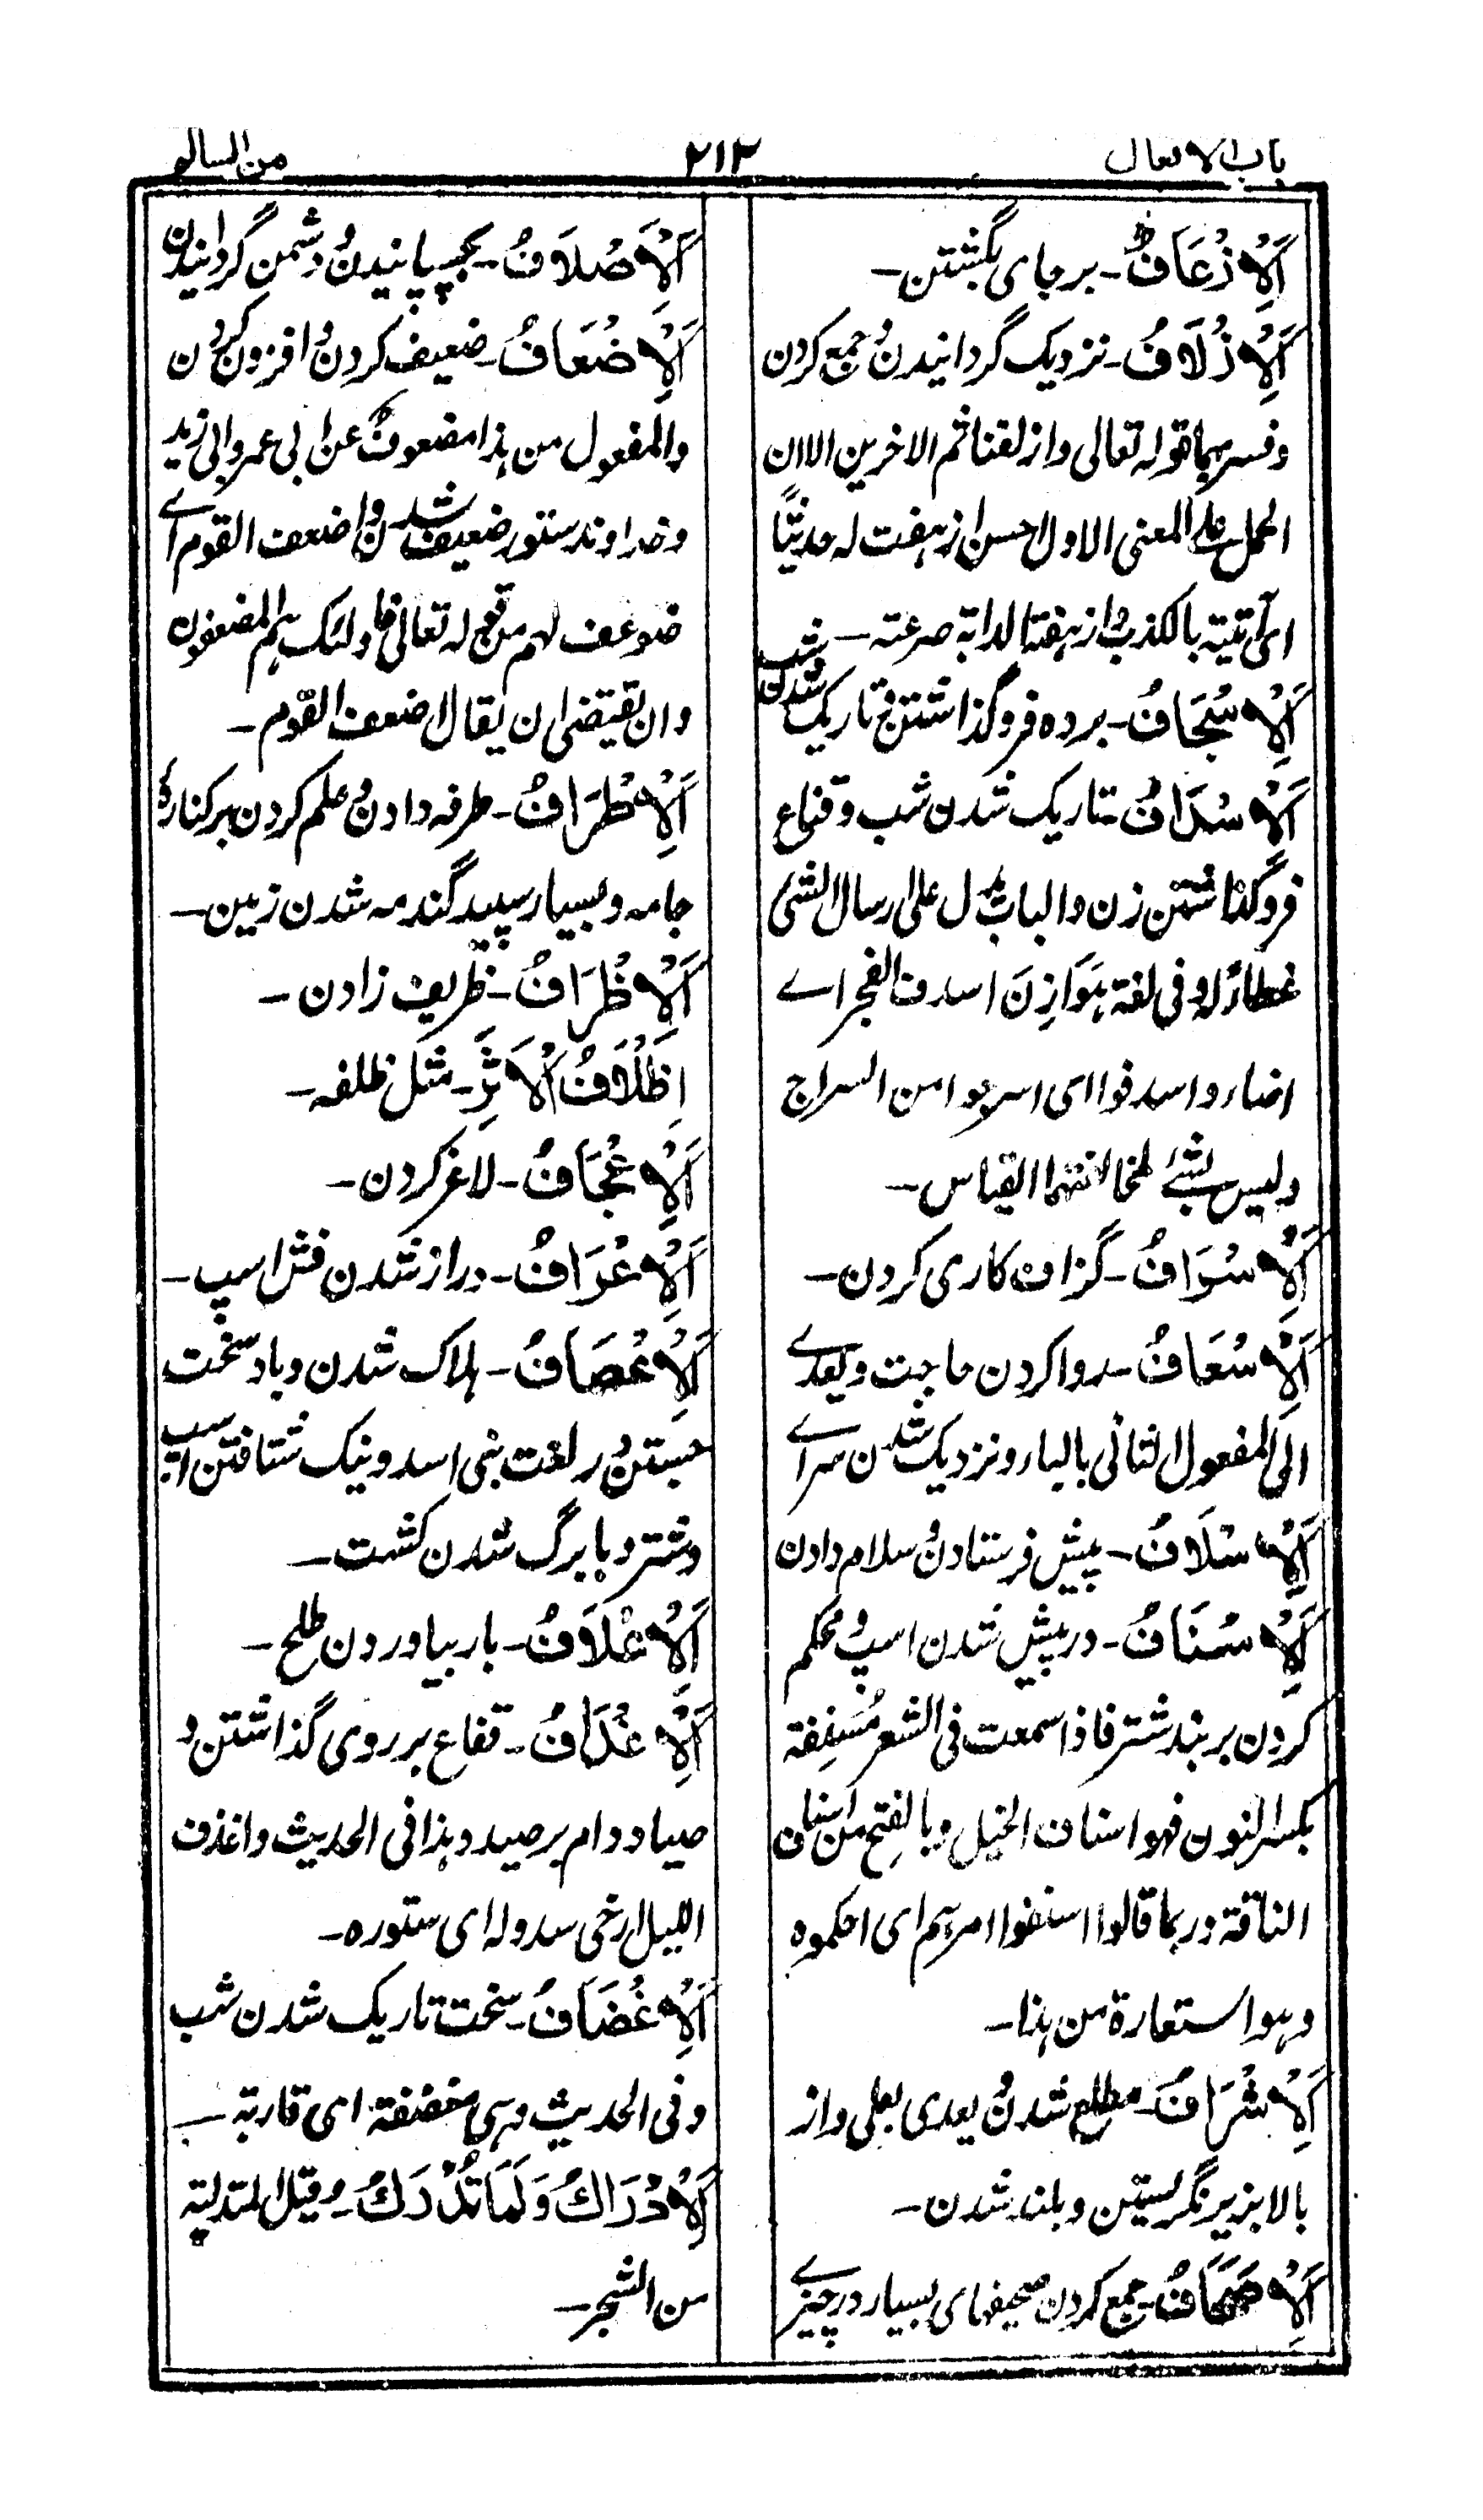 باب الافعال
۲۱۳
من السالم
اَلْاِزْعَافُ - برجای بکشتن -
اَلْاِزْلَافُ - نزدیک گردانیدن و جمع کردن
وفسر بهما قوله تعالی وازلفنا ثم الاخرین الا ان
الحمل علی المعنی الاول احسن ازهفت له حدیثًا
ای آتیته بالکذب وازهفتا لدابة صرعته -
اَلْاِسْجَافُ - پرده فروگذاشتن و تاریک شدن شب
اَلْاِسْدَافُ - تاریک شدن شب و قناع
فروگذاشتن زن والباب یدل علی ارسال الشئ
غطاءً او فی لغة هَوَازِنَ اسدف الفجر اے
اضاء واسدفوا ای اسرجوا من السراج
ولیس بشئے لمخالفتهما القیاس -
اَلْاِسْرَافُ - گزاف کاری کردن -
اَلْاِسْعَافُ - روا کردن حاجت ویعدے
الی المفعول الثانی بالباء ونزدیک شدن سراے
اَلْاِسْلَافُ - پیش فرستادن و سلام دادن
اَلْاِسْنَافُ - در پیش شدن اسپ و محکم
کردن بربند شتر فاذا سمعت فی الشعر مُسْنِفة
بکسر النون فهو اسناف الخیل وبالفتح من اسناف
الناقة وربما قالوا اسنفوا امرهم ای احکموه
وهو استعارة من هذا -
اَلْاِشْرَافُ - مطلع شدن و یعدی بعلی واز
بالا بزیر نگریستن و بلند شدن -
اَلْاِصْحَافُ - جمع کردن صحیفهای بسیار در چیزے
اَلْاِصْلَافُ - بچسپانیدن و دشمن گردانیدن
اَلْاِضْعَافُ - ضعیف کردن و افزون کردن
والمفعول من هذا مضعوف عن ابی عمرو ابی زید
و خداوند ستور ضعیف شدن و اضعف القوم اے
ضوعف لهم من قوله تعالی فاولئک هم المضعفون
وان یقتضی ان یقال اضعف القوم -
اَلْاِطْرَافُ - طرفه دادن و علم کردن برکنارهٔ
جامه و بسیار سپید گندمه شدن زمین -
اَلْاِظْرَافُ - ظریف زادن -
اِظْلَافُ الْاَثَرِ - مثل ظلفه -
اَلْاِعْجَافُ - لاغر کردن -
اَلْاِعْرَافُ - دراز شدن فش اسپ -
اَلْاِعْصَافُ - هلاک شدن و باد سخت
جستن در لغت بنی اسد و نیک شتافتن اسپ
وشتر و با برگ شدن کشت -
اَلْاِعْلَافُ - بار بیاوردن طلح -
اَلْاِغْدَافُ - قناع بر روی گذاشتن و
صیاد دام بر صید و هذا فی الحدیث واغدف
اللیل ارخی سدوله ای ستوره -
اَلْاِغْضَافُ - سخت تاریک شدن شب
وفی الحدیث وهی مغضفة ای قاربة -
اَلْاِدْرَاكُ وَلَمَّا تُدْرَكُ - وقیل المتدلیة
من الشجر -